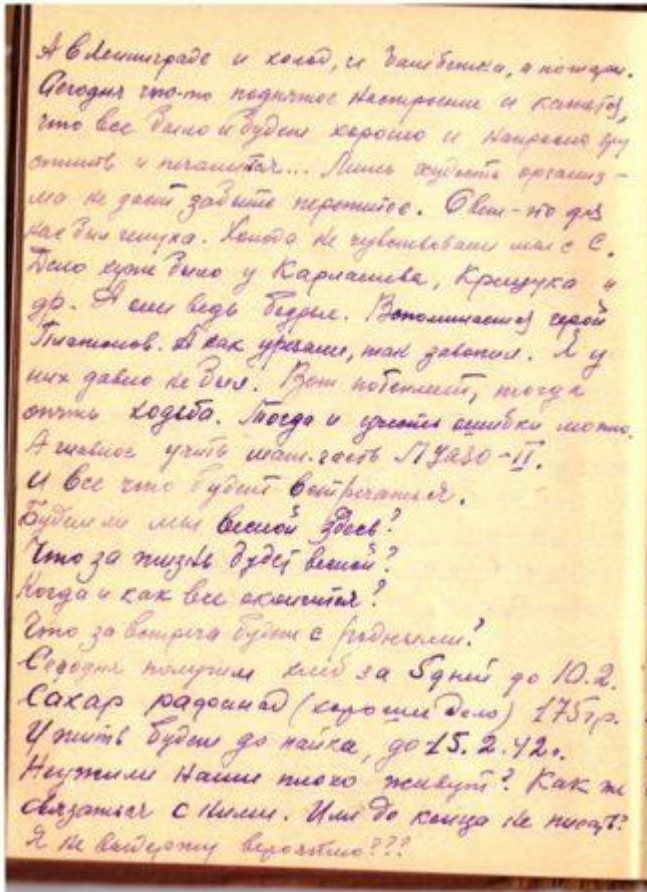 А в Ленинграде и холод, и бомбежка, а пожары.
Сегодня что-то поднятое настроение и кажется,
что все было и будет хорошо и напрасно гру
стить и печалится... Лишь худоба организ-
ма не дает забыть пережитое. Свет-то для
нас был штука. Холода не чувствовали мы с С.
Дело хуже было у Карлашева, Крищука и
др. А они ведь бодрые. Вспоминается герой
Платонов. А как урезали, так завопил. Я у
них давно не был. Вот потеплеет, тогда
опять ходьба. Тогда и учесть ошибки можно.
А главное учить мат. часть ПУАЗО-II.
И все что будет встречаться.
Будем ли мы весной здесь?
Что за жизнь будет весной?
Когда и как все окончится?
Что за встреча будет с родными?
Сегодня получим хлеб за 5 дней до 10.2.
Сахар (хорошее дело) 175 гр.
И жить будем до пайка, до 15.2.42г.
Неужели наши плохо живут? Как же
связаться с ними. Или до конца не писать?
Я не выдержу вероятно???